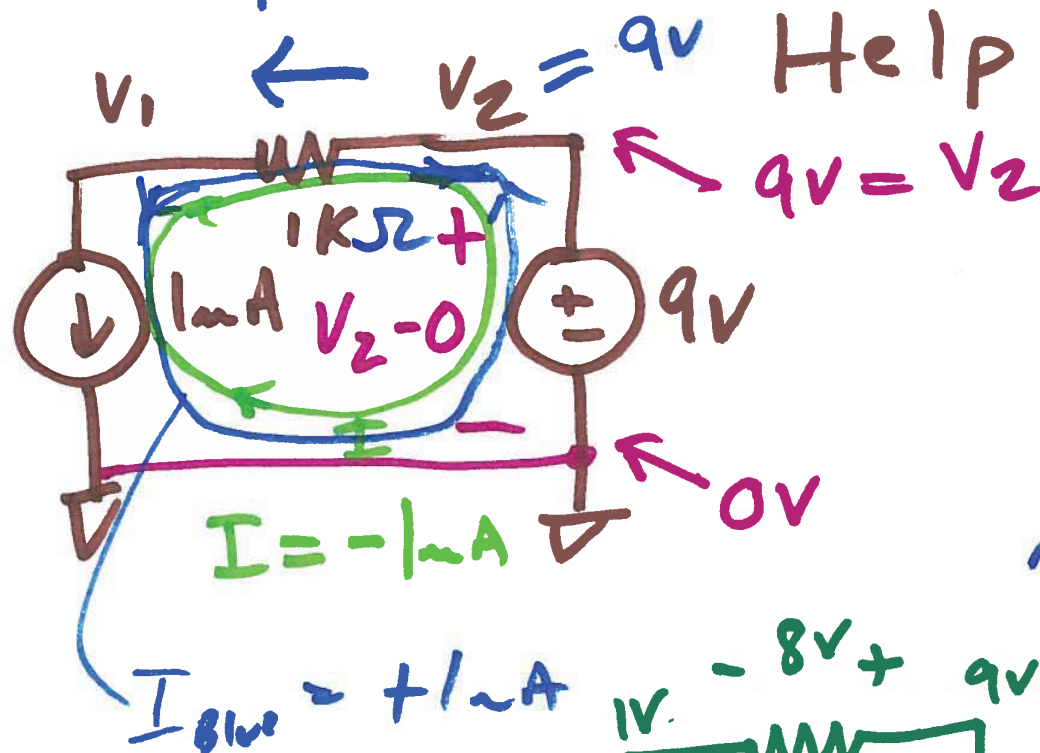 V1 ← V2 = 9V Help
9V = V2
1KΩ +
1mA V2-0 + - 9V
-
I
0V
I = -1mA
- 8V + 9V
I Blue = +1mA 1V.